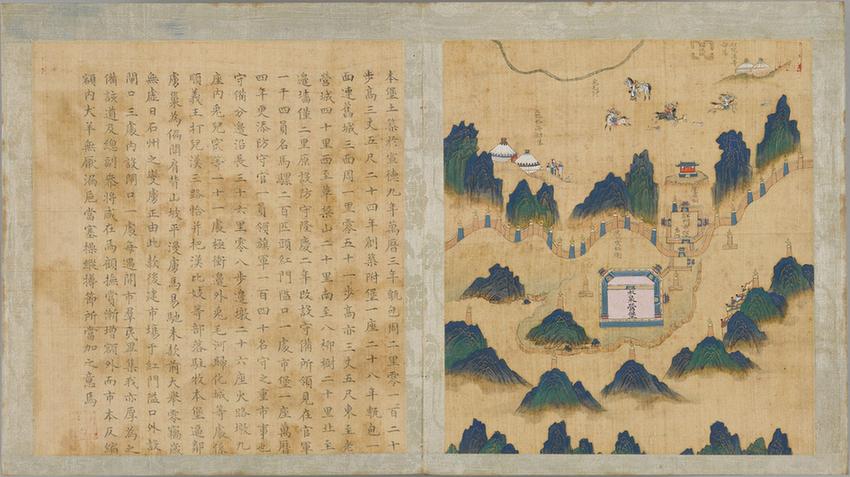 本堡土築於宣德九年萬曆三年甎包周二里零一百二十
步高三丈五尺二十四年創築附堡一座二十八年甎包一
面連舊城三面周一里零五十一步高亦三丈五尺東至老
營城四十里西至草垜山二十里南至八柳樹二十里北至
邉墻僅二里原設防守隆慶二年改設守備所領見在官軍
一千四員名馬騾二百匹頭紅門隘口一處市堡一座萬曆
四年更添防守官一員領旗軍一百四十名守之重市事也
守備分邉沿長三十六里零八步邉墩二十六座火路墩九
座內兎兒窊等一十一處極衝邉外兎毛河歸化城等處係
順義王打兒漢三路恰并把漢比妓等部落駐牧本堡邉鄰
虜巢為偏關肩背山坡平漫虜馬易馳未款前大舉零竊歲
無虛日石州之變虜正由此款後建市塲于紅門隘口外設
閘口三處內設閘口一處每遇開市羣民畢集我亦厚為之
備該道及總副叅將咸在焉顧撫賞漸增額外而市本反縮
額內犬羊無厭漏巵當塞操縱撙節所當加之意焉